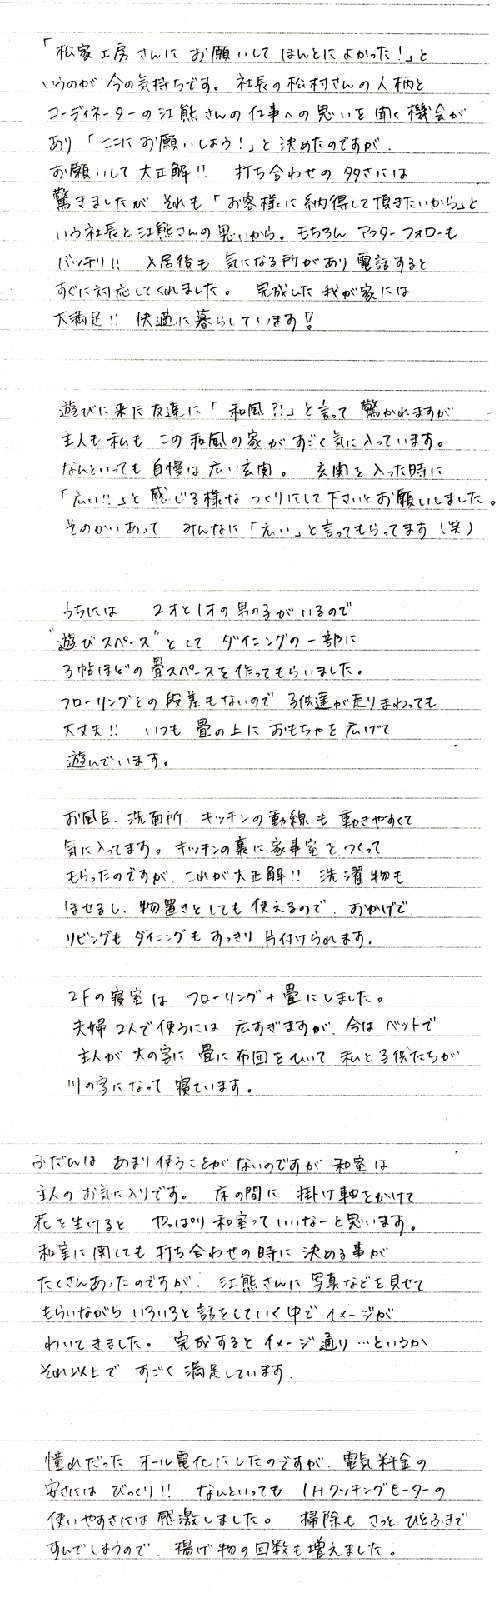 「松家工房さんに お願いして ほんとによかった！」と
いうのが 今の気持ちです。 社長の松村さんの人柄と
コーディネーターの江熊さんの仕事への思いを聞く機会が
あり 「ここにお願いしよう！」と 決めたのですが、
お願いして 大正解!! 打ち合わせの 多さには
驚きましたが それも「お客様に納得して頂きたいから」と
いう社長と江熊さんの思いから。もちろん アフターフォローも
バッチリ!! 入居後も 気になる所があり 電話すると
すぐに対応してくれました。 完成した 我が家には
大満足!! 快適に暮らしています!
遊びに来た友達に「 和風?!」と言って 驚かれますが
主人も私も この和風の家がすごく気に入っています。
なんといっても 自慢は広い玄関。 玄関を入った時に
「広い!!」と感じる様な つくりにして下さいとお願いしました。
そのかいあって みんなに「広い」と言ってもらってます（笑）
うちには 2才と1才の男の子がいるので
"遊びスペース"として ダイニングの一部に
3帖ほどの畳スペースを作ってもらいました。
フローリングとの段差もないので 子供達が走りまわっても
大丈夫!! いつも 畳の上に おもちゃを広げて
遊んでいます。
お風呂、洗面所、キッチンの動線も 動きやすくて
気に入ってます。キッチンの裏に 家事室をつくって
もらったのですが、これが大正解!! 洗濯物も
ほせるし、物置きとしても使えるので、おかげで
リビングも ダイニングも すっきり片付けられます。
2Fの寝室は フローリング+畳にしました。
夫婦2人で使うには 広すぎますが、今は ベットで
主人が大の字に 畳に布団をひいて 私と子供たちが
川の字になって 寝ています。
ふだんは あまり使うことがないのですが 和室は
主人のお気に入りです。 床の間に 掛け軸をかけて
花を生けると やっぱり和室っていいなーと思います。
和室に関しても打ち合わせの時に 決める事が
たくさんあったのですが、江熊さんに 写真などを見せて
もらいながら いろいろと話をしていく中で イメージが
わいてきました。 完成すると イメージ通り…というか
それ以上で すごく満足しています。
憧れだった オール電化にしたのですが、電気料金の
安さには びっくり!! なんといっても IHクッキングヒーターの
使いやすさには感激しました。 掃除も さっと ひとふきで
すんでしまうので、揚げ物の回数も増えました。